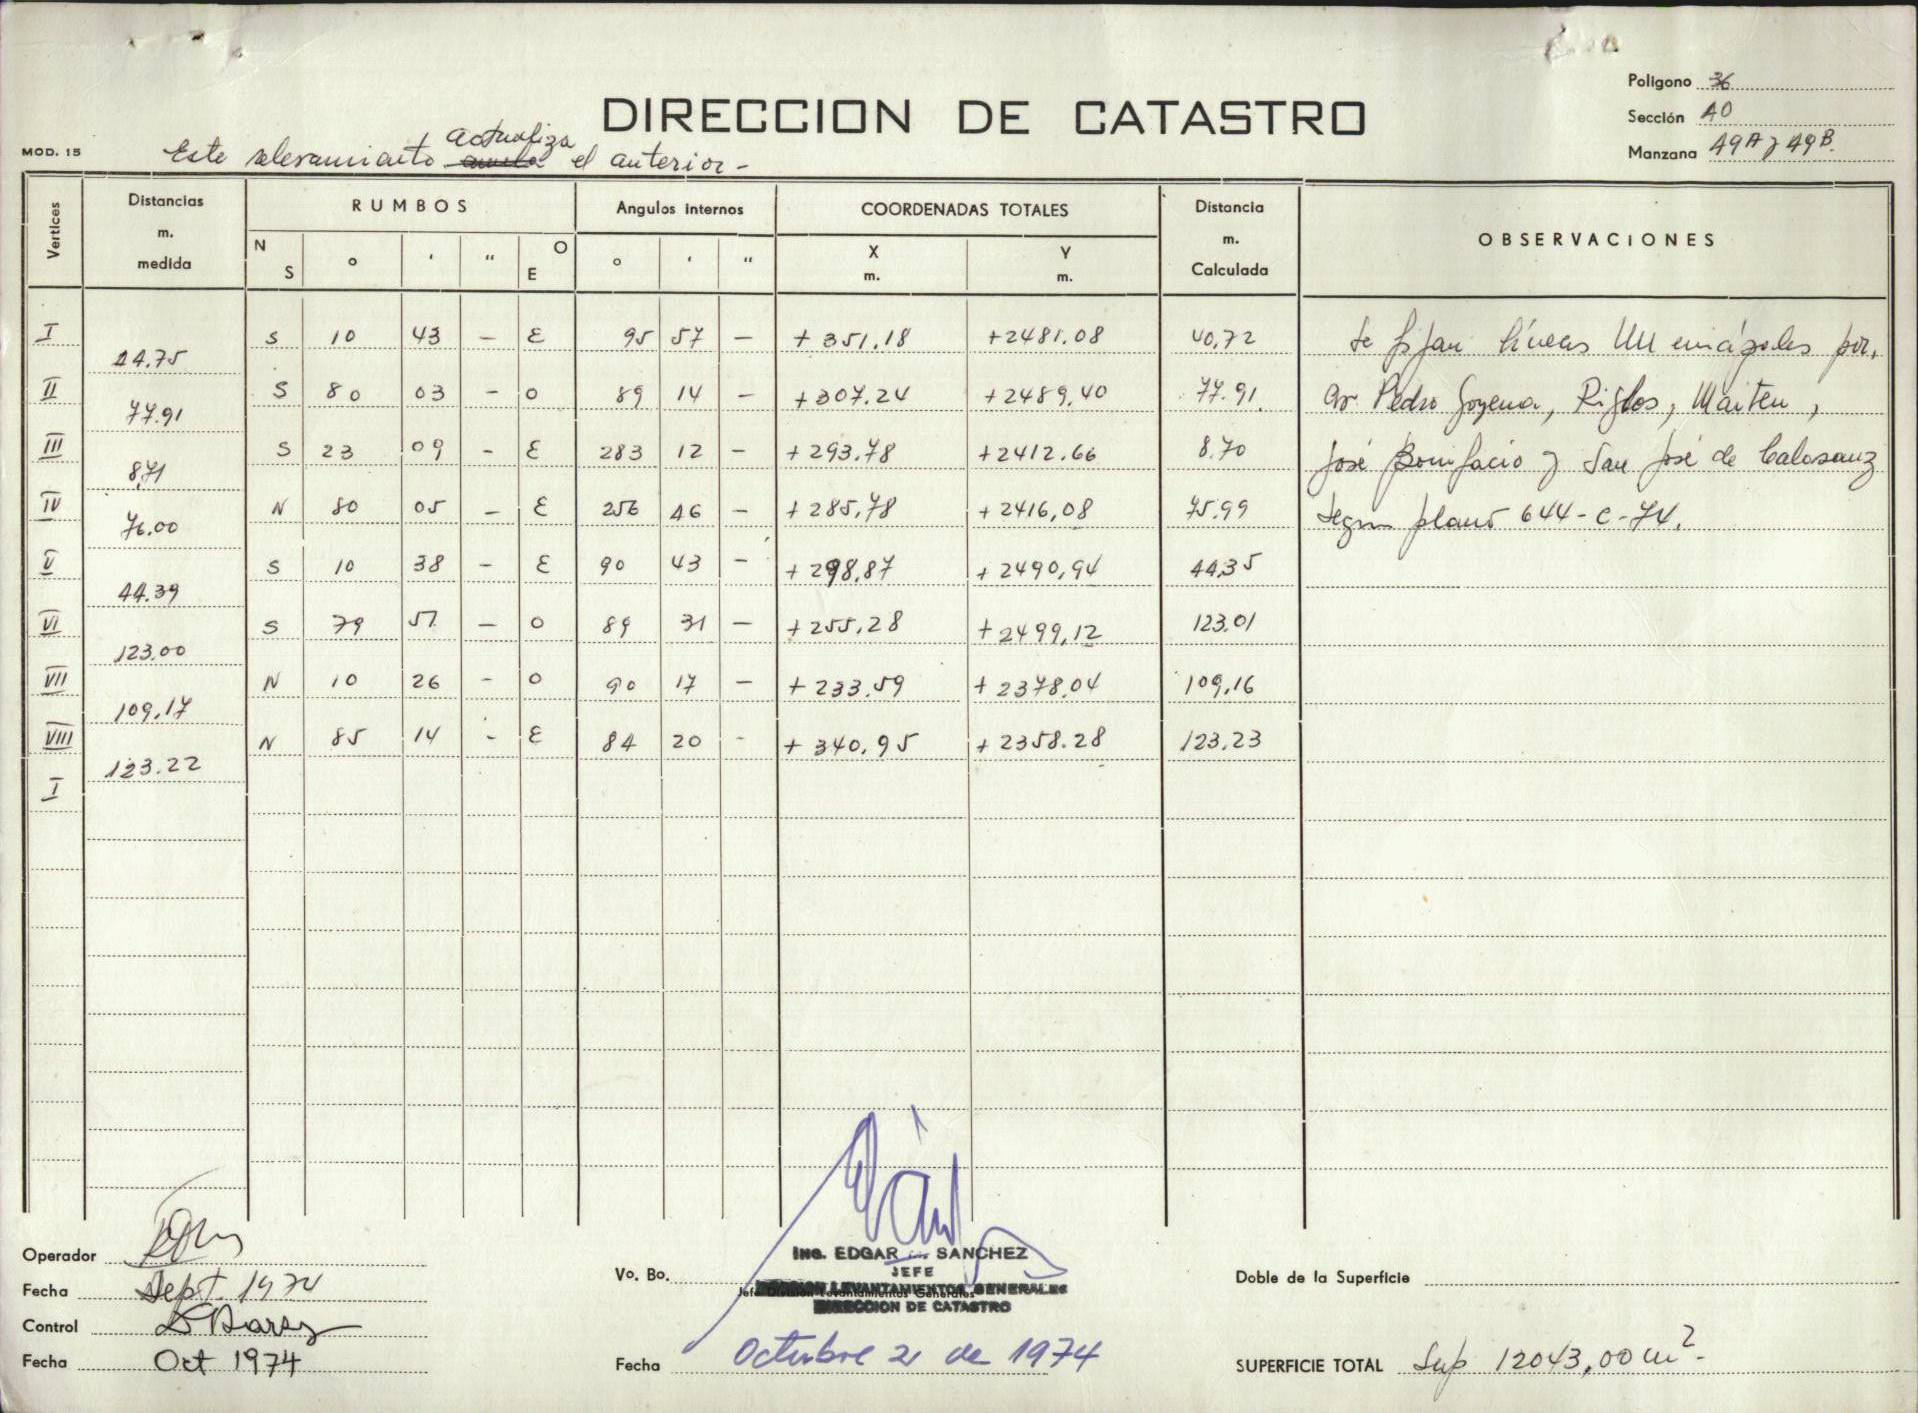 Poligono 36
DIRECCION DE CATASTRO
Sección 40
MOD. 15
Este relevamiento actualiza el anterior -
Manzana 49A y 49B.
Vertices Distancias m. medida RUMBOS Angulos internos COORDENADAS TOTALES Distancia m. Calculada OBSERVACIONES
N S ° ' " O E ° ' " X m. Y m.
I S 10 43 - E 95 57 - +351.18 +2481.08 40,72 Se fijan líneas Municipales por,
44.75
II S 80 03 - O 89 14 - +307.24 +2489,40 77.91 av Pedro Goyena, Riglos, Maiten,
77.91
III S 23 09 - E 283 12 - +293.78 +2412.66 8.70 José Bonifacio y San José de Calasanz
8,71
IV N 80 05 - E 256 46 - +285,78 +2416,08 75.99 Segun plano 644-C-74.
76.00
V S 10 38 - E 90 43 - +298,87 +2490,94 44,35
44.39
VI S 79 51 - O 89 31 - +255,28 +2499,12 123.01
123.00
VII N 10 26 - O 90 17 - +233.59 +2378.04 109,16
109,17
VIII N 85 14 - E 84 20 - +340,95 +2358.28 123.23
123.22
I
Operador
Fecha Sept. 1974
Control
Fecha Oct 1974
Vo. Bo.
Ing. EDGAR SANCHEZ
JEFE
DIVISION LEVANTAMIENTOS GENERALES
DIRECCION DE CATASTRO
Fecha Octubre 21 de 1974
Doble de la Superficie
SUPERFICIE TOTAL Sup 12043,00 m2-